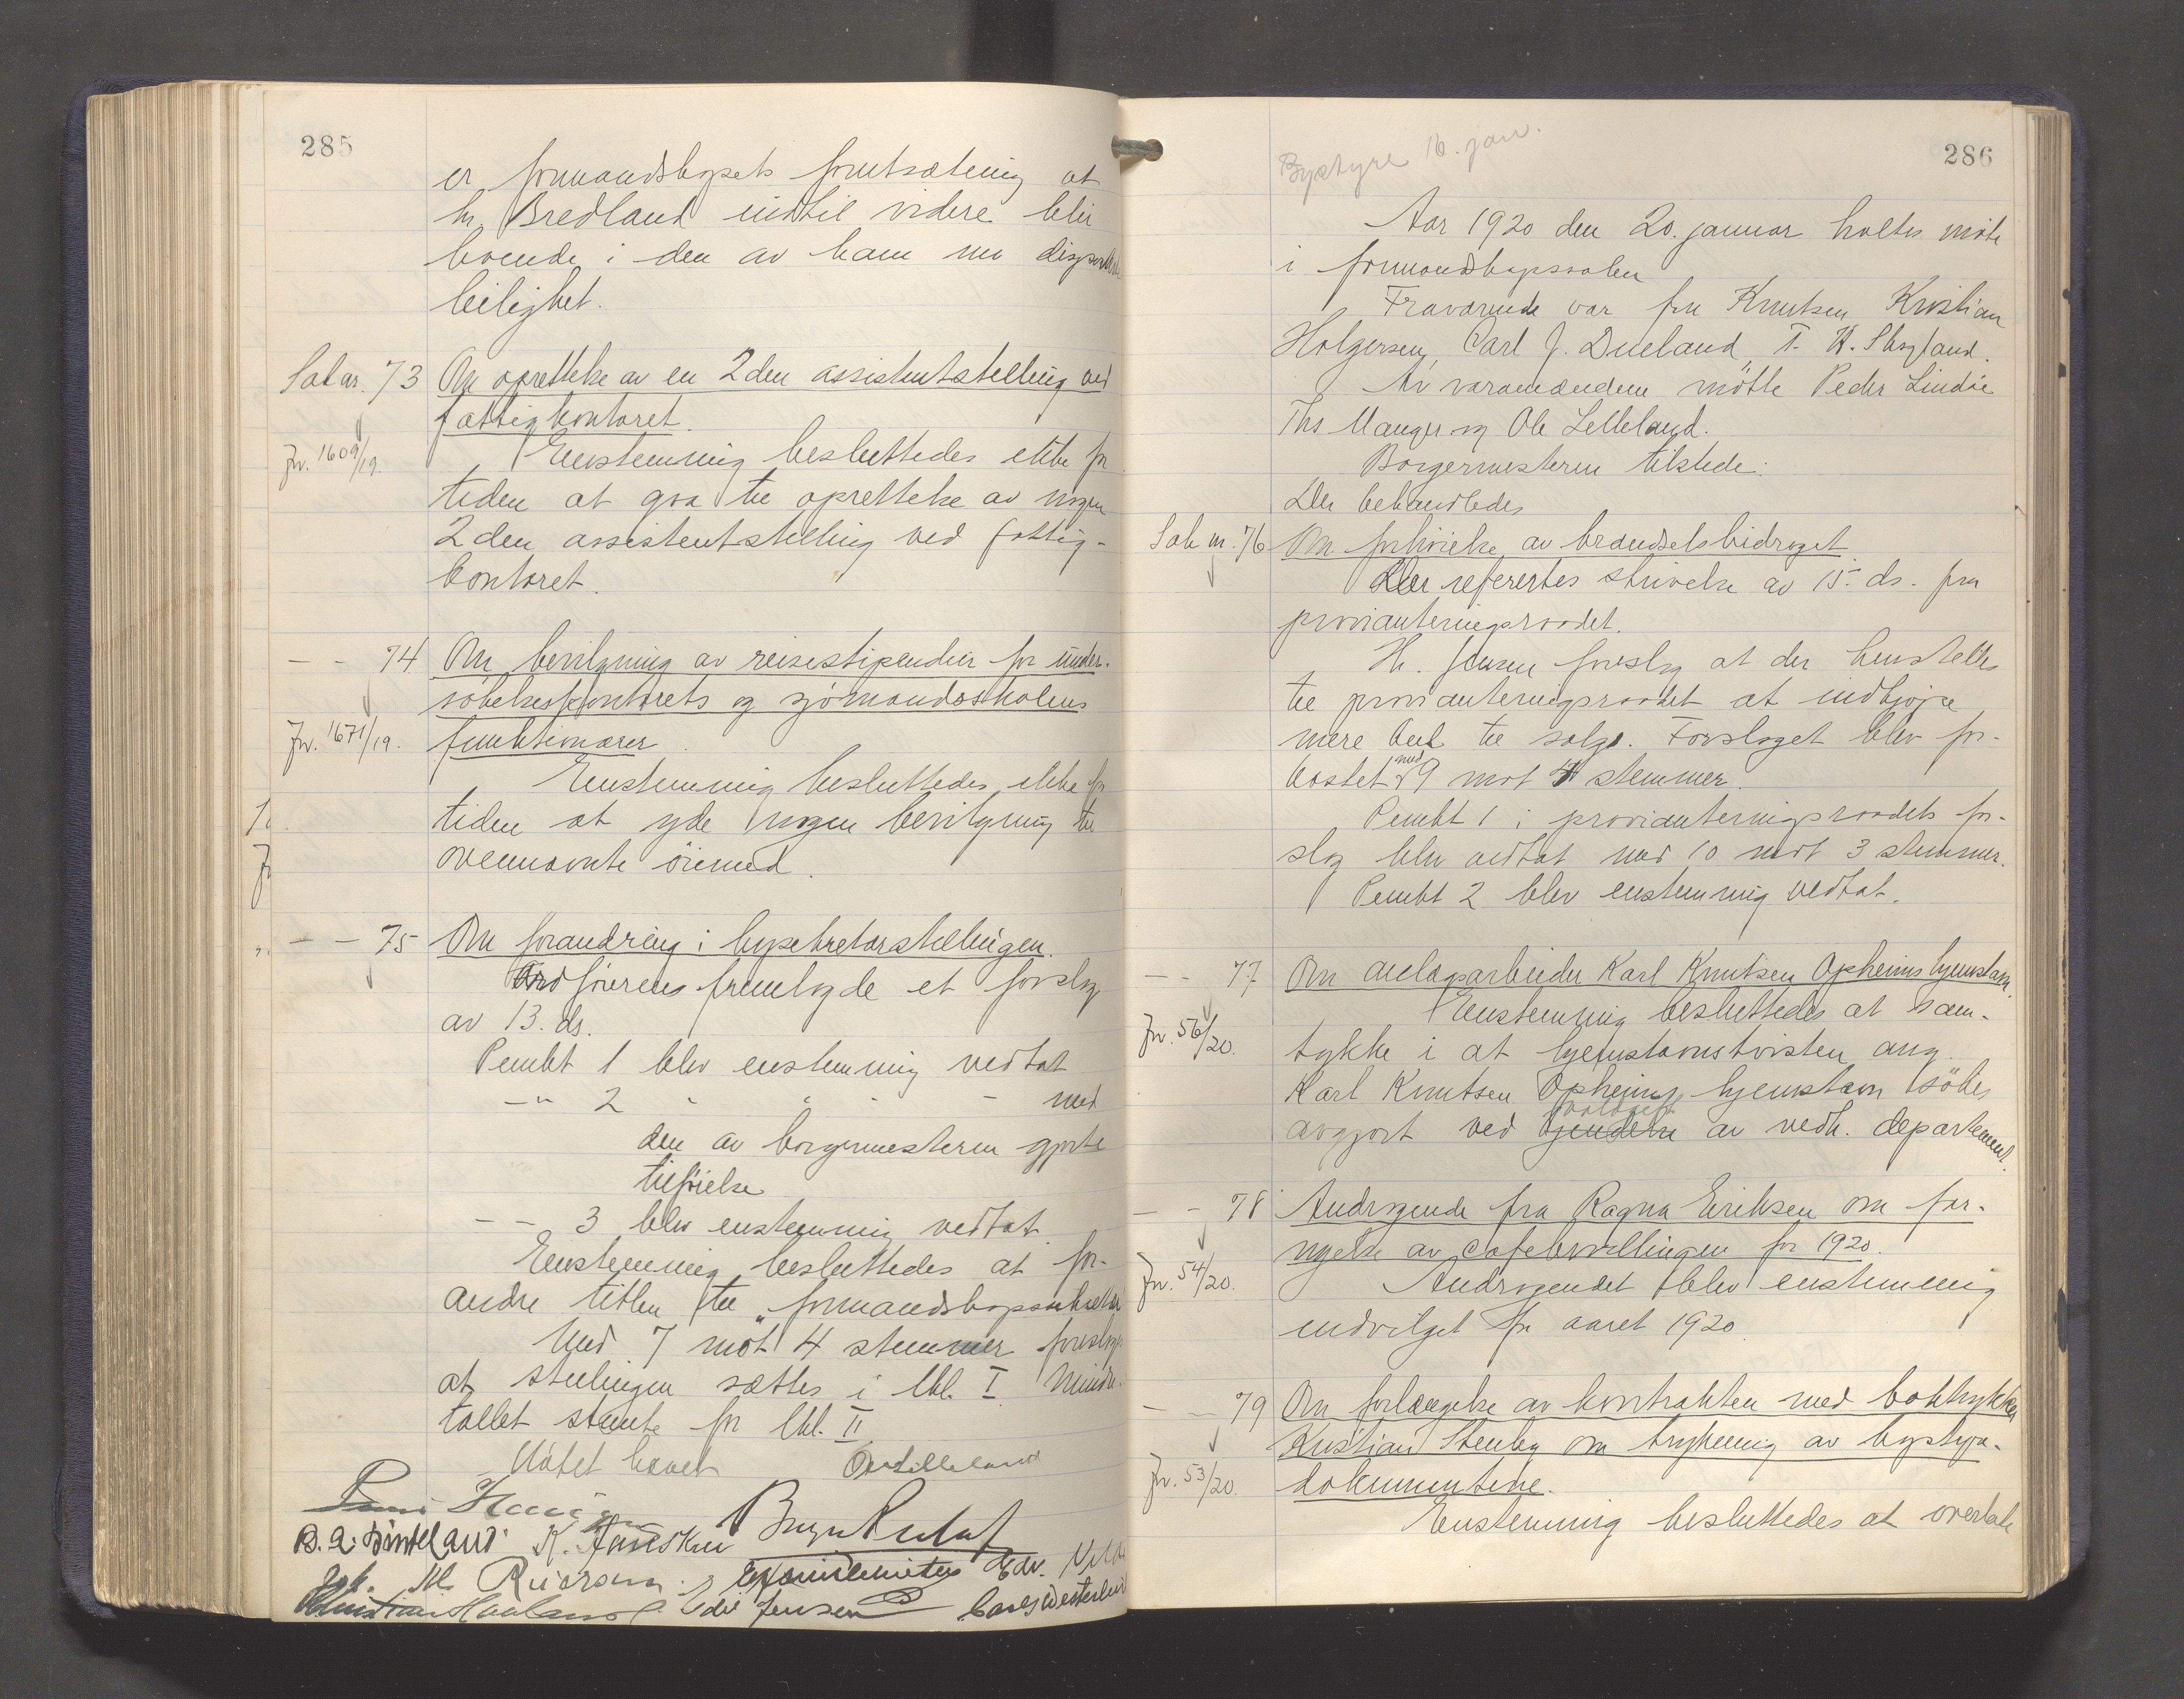 285
er formandskapets forutsætning at
hr. Bredland indtil videre blir
boende i den av ham nu disponerte
leilighet.
Sak nr. 73 Om oprettelse av en 2den assistentstilling ved
fattigkontoret.
Jnr. 1609/19. Enstemmig besluttedes ikke for
tiden at gaa til oprettelse av nogen
2den assistentstilling ved fattig-
kontoret.
- - 74 Om bevilgning av reisestipendier for under-
søkelseskontorets og sjømandsskolens
Jnr. 1671/19. funktionærer.
Enstemmig besluttedes ikke for
tiden at yde nogen bevilgning til
ovennævnte øiemed.
- - 75 Om forandring i bysekretærstillingen.
Ordførerens fremlagde et forslag
av 13. ds.
Punkt 1 blev enstemmig vedtat
-"- 2 " " " - med
den av borgermesteren gjorte
tilføielse
- - 3 blev enstemmig vedtat.
Enstemmig besluttedes at for-
andre titlen til "formandskapssekretær
Med 7 mot 4 stemmer foresloges
at stillingen sættes i lkl. I. Mindre-
tallet stemte for lkl. II
Møtet hævet Ole Lilleland
B. A. K.
Edv.
Edv. Jensen
286
Bystyre 16. jan.
Aar 1920 den 20. januar holtes møte
i formandskapssalen
Fraværende var fru Knutsen, Kristian
Holgersen, Carl J. Dueland, T. H. Skogland.
Av varamændene møtte Peder Lindøe
Ths Manger og Ole Lelleland.
Borgermesteren tilstede.
Der behandledes
Sak nr. 76 Om forhøielse av brændselsbidraget
Der refereres skrivelse av 15. ds. fra
provianteringsraadet.
Hr. Jensen foreslog at der henstilles
til provianteringsraadet at indkjøpe
mere kul til salgs. Forslaget blev for-
kastet med 9 mot 4 stemmer.
Punkt 1 i provianteringsraadets for-
slag blev vedtat med 10 mot 3 stemmer.
Punkt 2 blev enstemmig vedtat.
- - 77 Om anlægsarbeider Karl Knutsen Opheims hjemstavn.
Enstemmig besluttedes at sam-
Jnr. 56/20. tykke i at hjemstavnstvisten ang.
Karl Knutsen Opheims hjemstavn søkes
avgjort ved av vedk. departement.
- - 78 Andragende fra Ragna Eriksen om for-
nyelse av cafebevillingen for 1920.
Jnr. 54/20. Andragendet blev enstemmig
indvilget for aaret 1920
- - 79 Om forlængelse av kontrakten med boktrykker
Kristian Stenby om trykning av bystyre-
Jnr. 53/20. dokumentene.
Enstemmig besluttedes at overlate